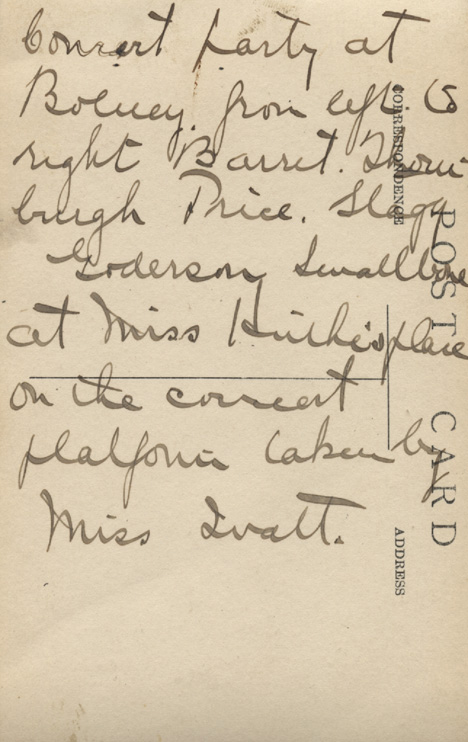 Concert party at
Bolney from left to
right Barret. Thorn-
burgh Price. Slagg
Goderson Smallbone
at Miss place
on the concert
platform taken by
Miss
CORRESPONDENCE
POST CARD
ADDRESS